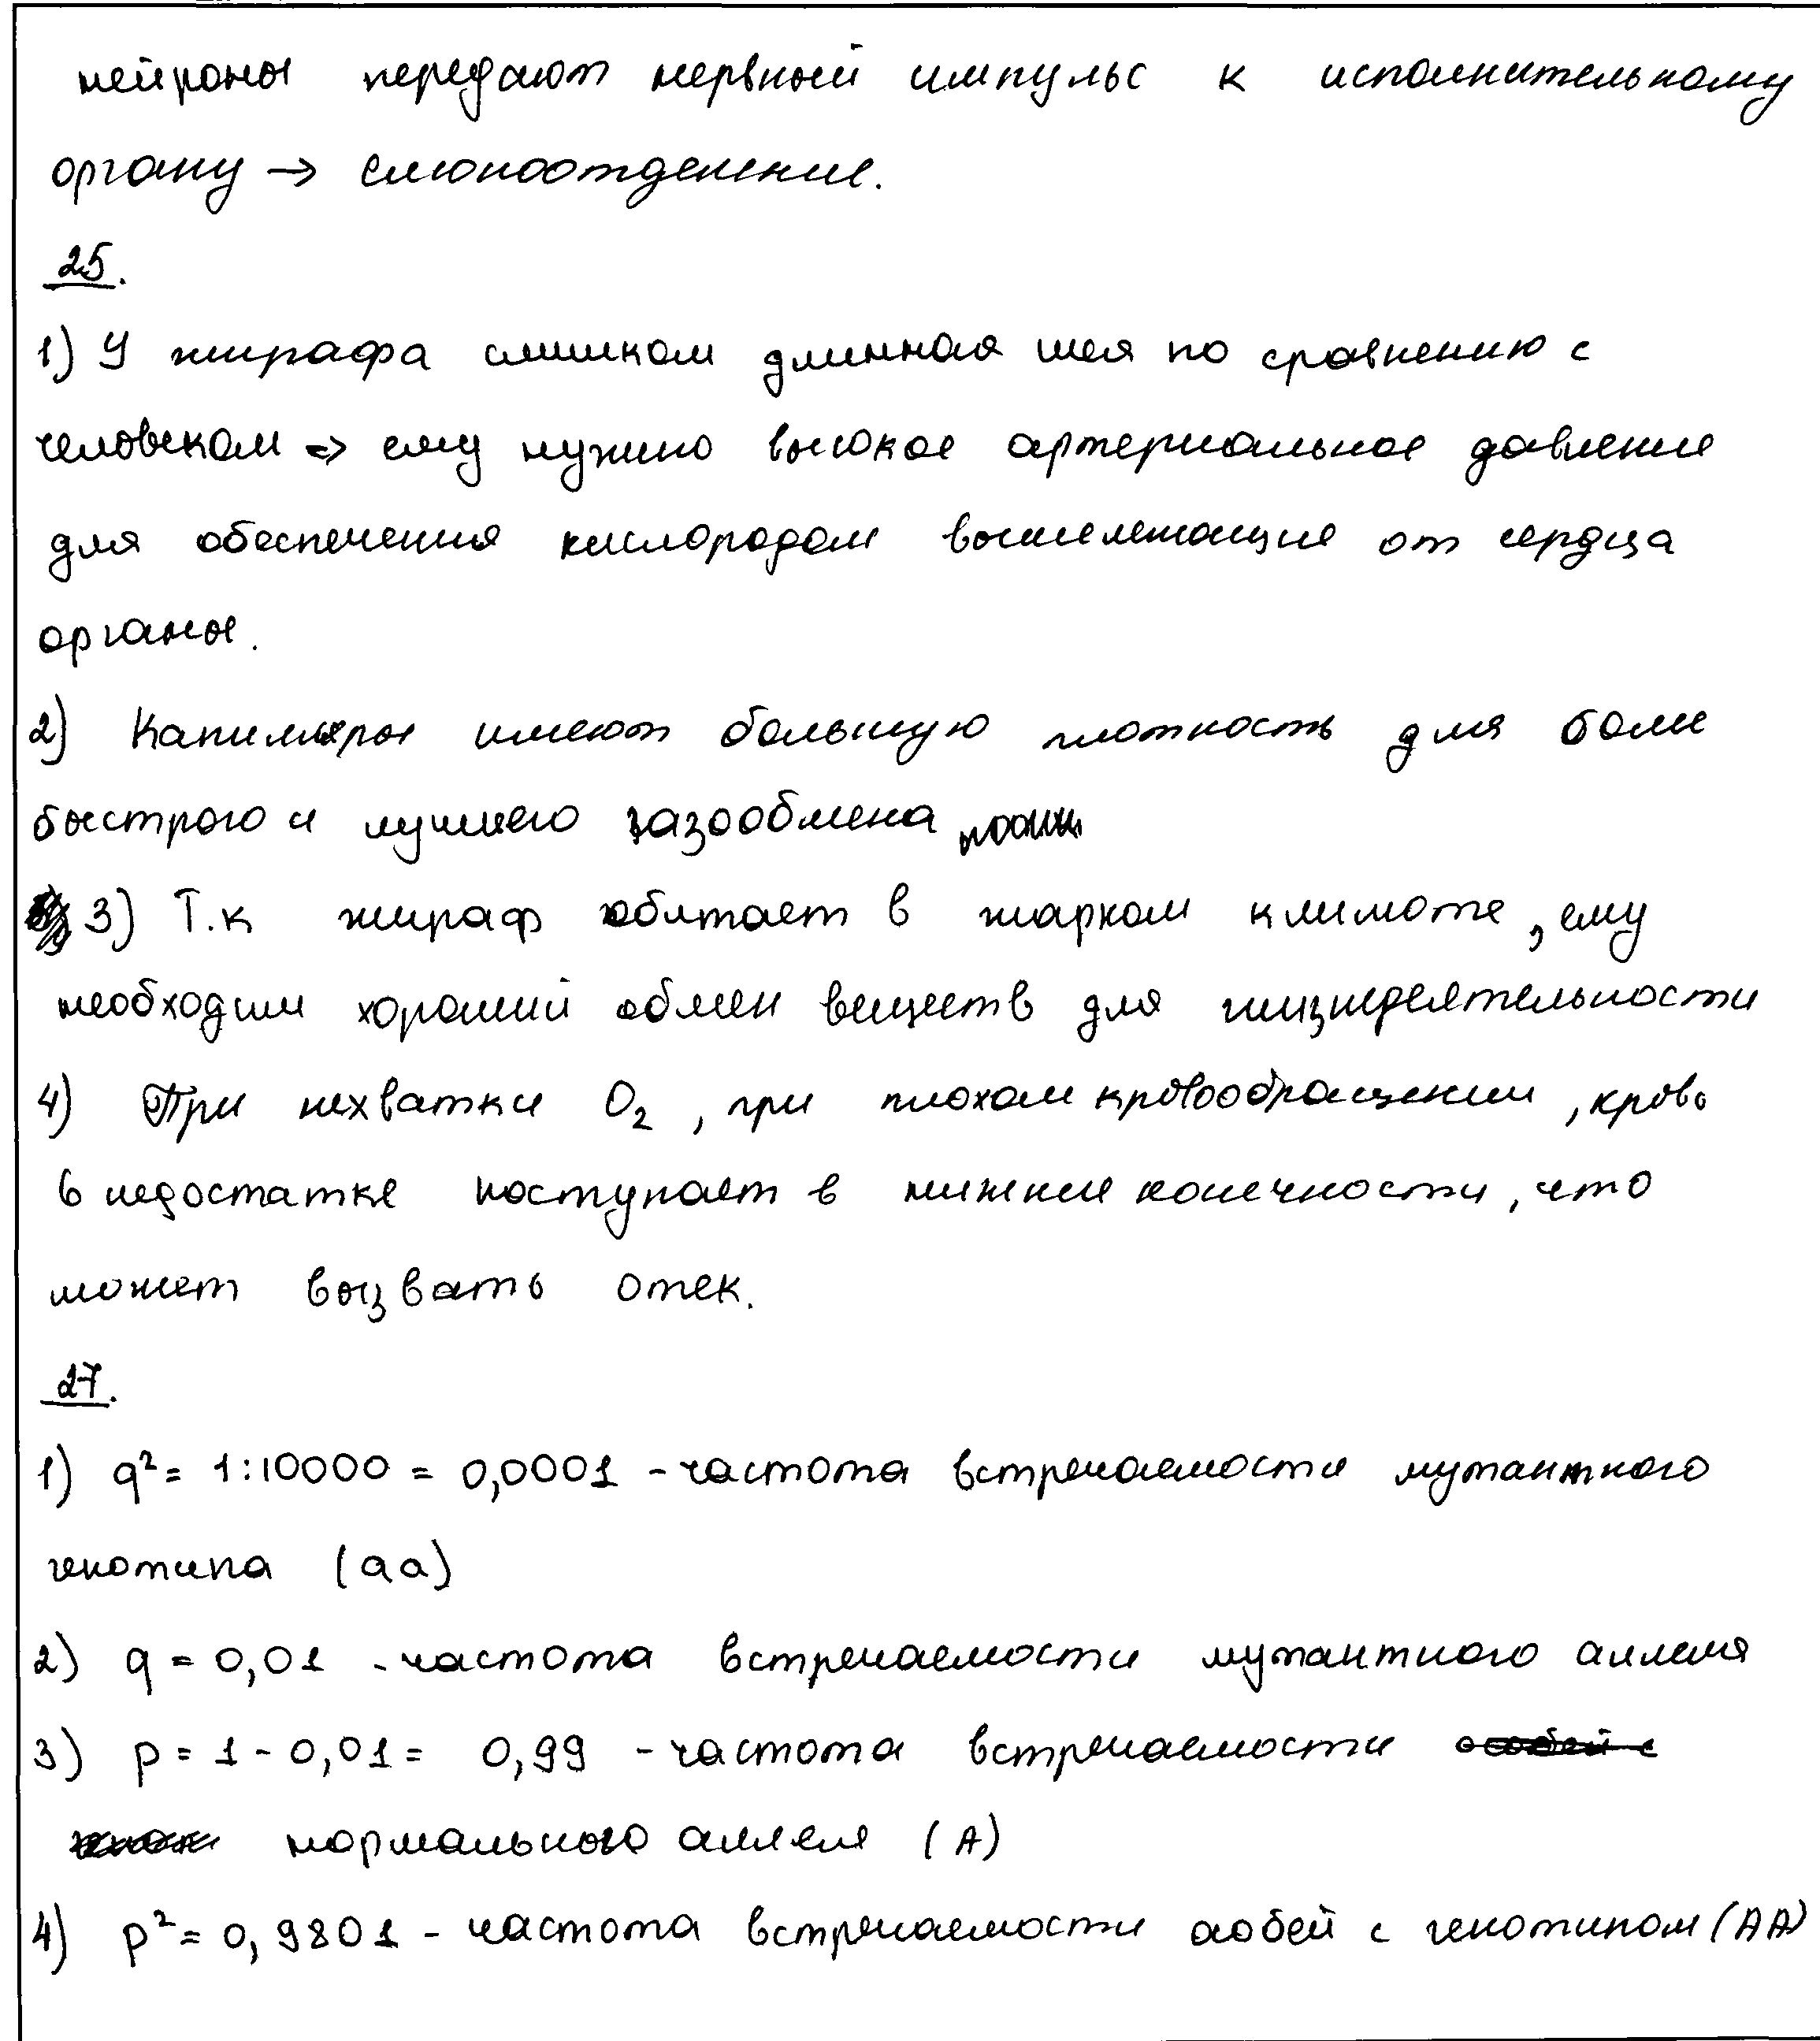 нейроны передают нервный импульс к исполнительному
органу → слюноотделение.
25.
1) У жирафа слишком длинная шея по сравнению с
человеком => ему нужно высокое артериальное давление
для обеспечения кислородом вышележащие от сердца
органы.
2) Капилляры имеют большую плотность для более
быстрого и лучшего газообмена
3) Т.к жираф обитает в жарком климате, ему
необходим хороший обмен веществ для жизнедеятельности
4) При нехватки O₂, при плохом кровообращении, кровь
в недостатке поступает в нижние конечности, что
может вызвать отек.
27.
1) q² = 1:10000 = 0,0001 - частота встречаемости мутантного
генотипа (aa)
2) q = 0,01 - частота встречаемости мутантного аллеля
3) p = 1 - 0,01 = 0,99 - частота встречаемости особей с
нормального аллеля (A)
4) p² = 0,9801 - частота встречаемости особей с генотипом (AA)